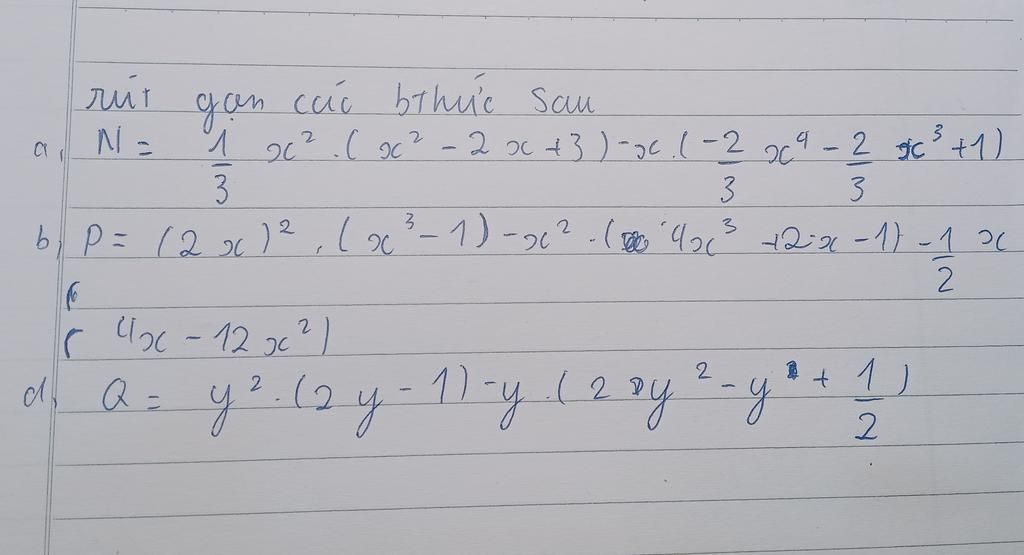 rút gọn các bthức sau
a, N = 1/3 x² . ( x² - 2x + 3 ) - x . ( -2/3 x⁴ - 2/3 x³ + 1 )
b, P = (2x)² . ( x³ - 1 ) - x² . ( 4x³ + 2x - 1 ) - 1/2 x
( 4x - 12x² )
d, Q = y² . ( 2y - 1 ) - y . ( 2y² - y + 1/2 )